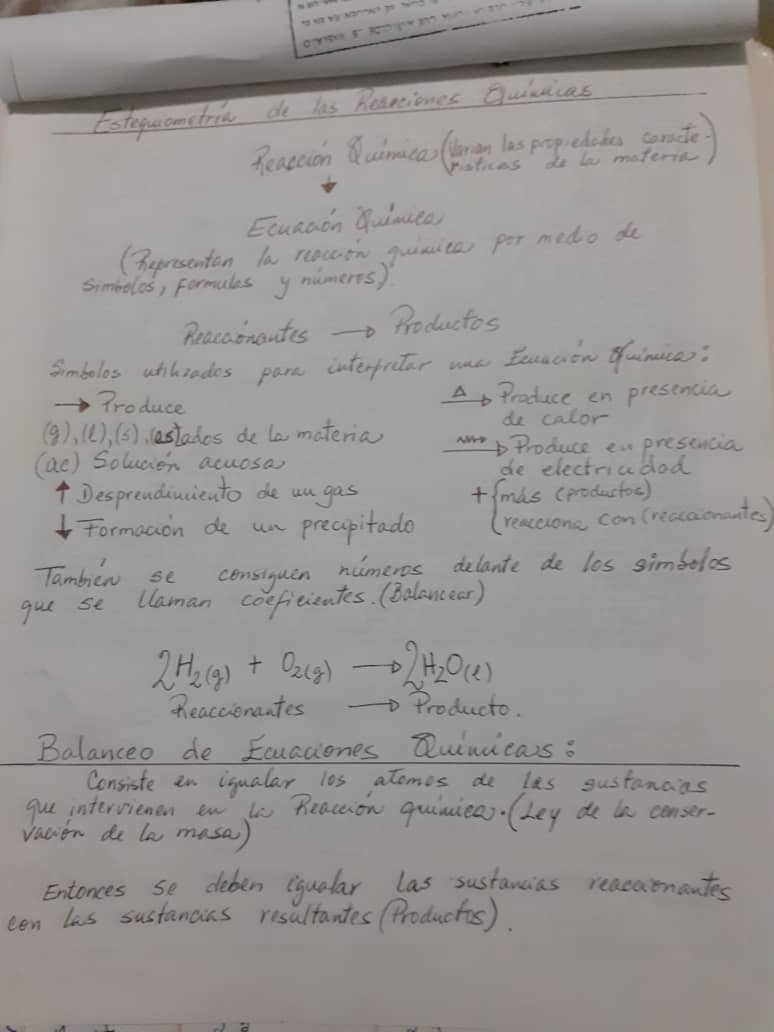 Estequiometría de las Reacciones Químicas
Reacción Química (Varian las propiedades caracte-
rísticas de la materia)
↓
Ecuación Química
(Representan la reacción química por medio de
símbolos, formulas y números).
Reaccionantes → Productos
Símbolos utilizados para interpretar una Ecuación Química:
→ Produce
(g), (l), (s), estados de la materia
(ac) Solución acuosa
↑ Desprendimiento de un gas
↓ Formación de un precipitado
Δ→ Produce en presencia
de calor
→ Produce en presencia
de electricidad
+ { más (productos)
reacciona con (reaccionantes)
También se consiguen números delante de los símbolos
que se llaman coeficientes. (Balancear)
2H₂(g) + O₂(g) → 2H₂O(l)
Reaccionantes → Producto.
Balanceo de Ecuaciones Químicas:
Consiste en igualar los átomos de las sustancias
que intervienen en la Reacción química. (Ley de la conser-
vación de la masa)
Entonces se deben igualar las sustancias reaccionantes
con las sustancias resultantes (Productos).